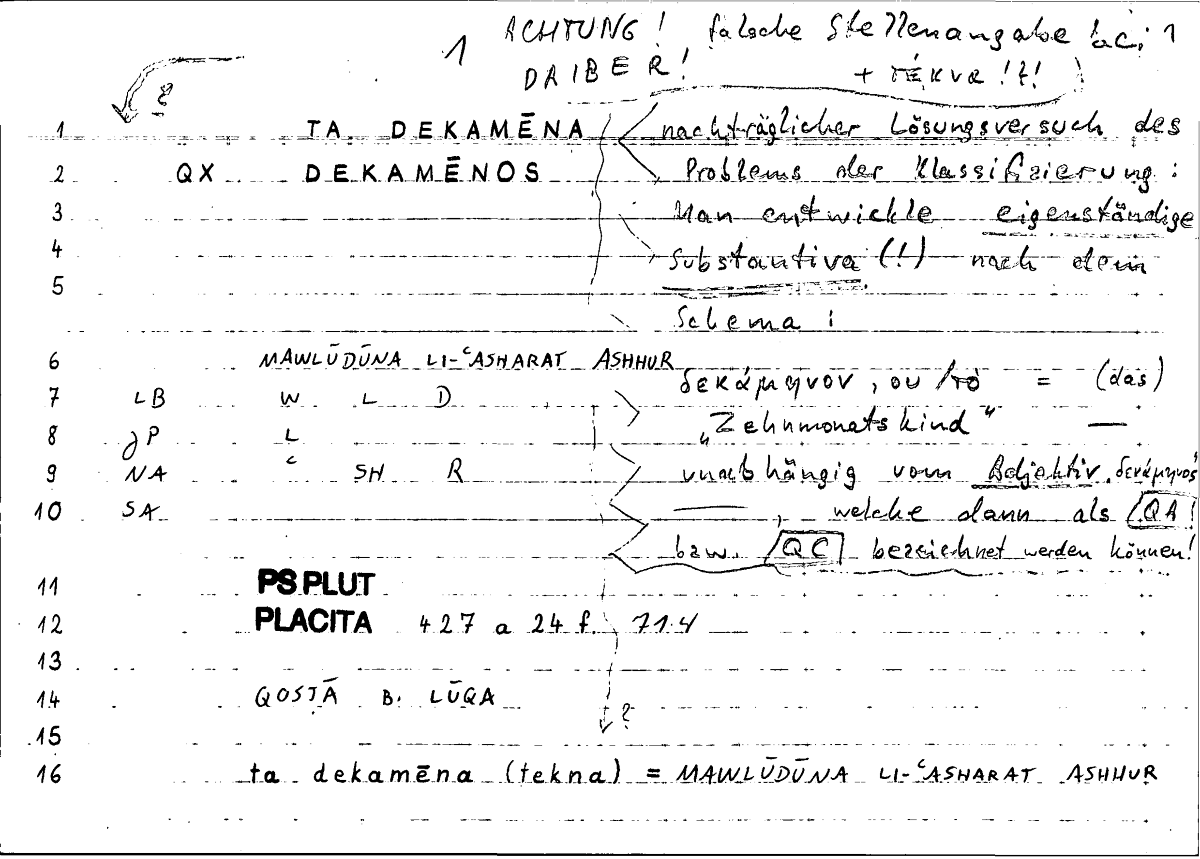 1 ACHTUNG! falsche Stellenangabe bei 1
DAIBER! + τέκνα!?!
?
1 TA DEKAMĒNA nachträglicher Lösungsversuch des
2 QX DEKAMĒNOS Problems der Klassifizierung:
3 Man entwickle eigenständige
4 Substantiva (!) nach dem
5
Schema:
6 MAWLŪDŪNA LI-ʿASHARAT ASHHUR
δεκάμηνον, ου τὸ = (das)
7 LB W L D
8 JP L „Zehnmonatskind" —
9 NA ʿ SH R unabhängig vom Adjektiv δεκάμηνος
10 SA —, welche dann als QA!
bzw. QC bezeichnet werden können!
11 PS PLUT
12 PLACITA 427 a 24 f. 71.4
13
14 QOSṬĀ B. LŪQA
?
15
16 ta dekamēna (tekna) = MAWLŪDŪNA LI-ʿASHARAT ASHHUR